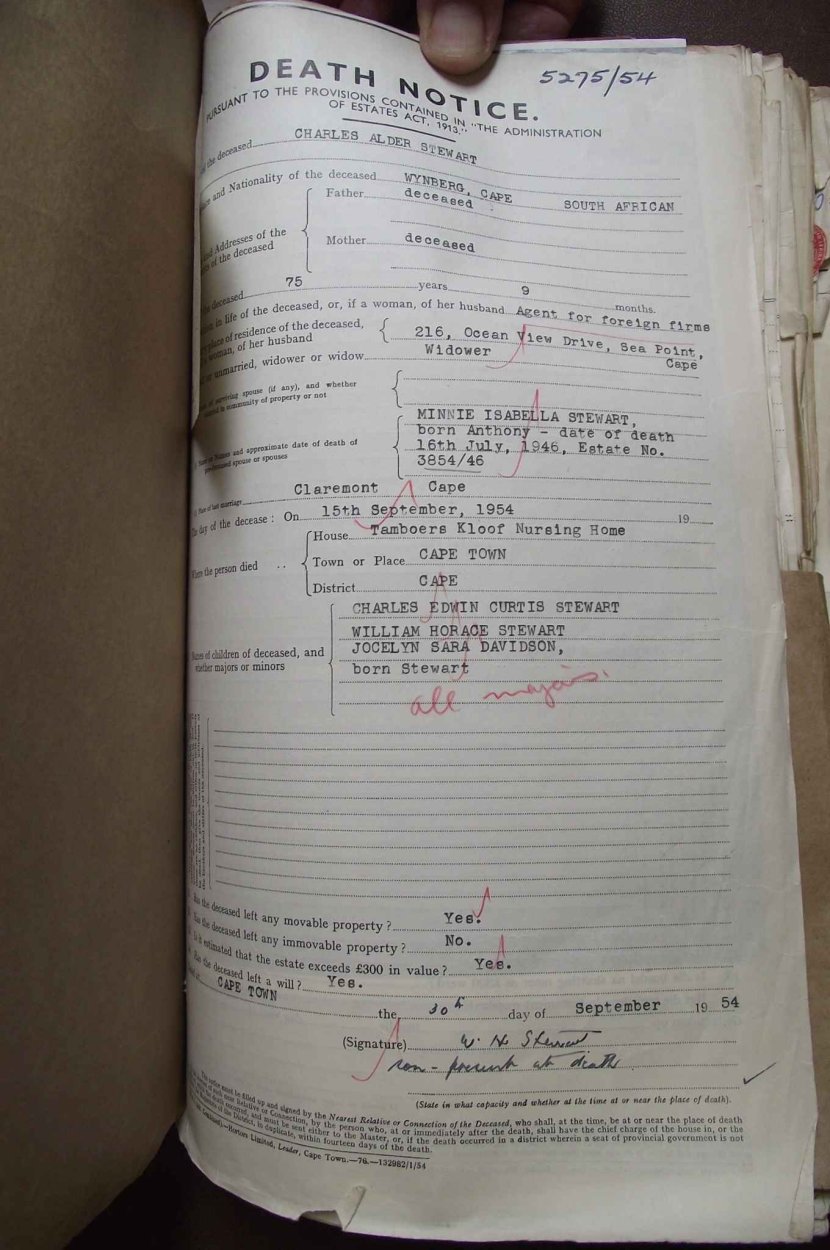 5275/54
DEATH NOTICE.
PURSUANT TO THE PROVISIONS CONTAINED IN "THE ADMINISTRATION
OF ESTATES ACT, 1913."
the deceased CHARLES ALDER STEWART
and Nationality of the deceased WYNBERG, CAPE SOUTH AFRICAN
Father deceased
and Addresses of the
of the deceased
Mother deceased
deceased 75 years 9 months.
in life of the deceased, or, if a woman, of her husband Agent for foreign firms
place of residence of the deceased,
woman, of her husband
216, Ocean View Drive, Sea Point,
Cape
unmarried, widower or widow Widower
surviving spouse (if any), and whether
married in community of property or not
MINNIE ISABELLA STEWART,
born Anthony - date of death
Names and approximate date of death of
pre-deceased spouse or spouses
16th July, 1946, Estate No.
3854/46
Place of last marriage Claremont Cape
The day of the decease: On 15th September, 1954 19
House Tamboers Kloof Nursing Home
Where the person died .. Town or Place CAPE TOWN
District CAPE
CHARLES EDWIN CURTIS STEWART
WILLIAM HORACE STEWART
Names of children of deceased, and
whether majors or minors
JOCELYN SARA DAVIDSON,
born Stewart
all majors.
Has the deceased left any movable property? Yes.
Has the deceased left any immovable property? No.
Is it estimated that the estate exceeds £300 in value? Yes.
Has the deceased left a will? Yes.
CAPE TOWN the 30th day of September 19 54
(Signature) W. H. Stewart
son - present at death
(State in what capacity and whether at the time at or near the place of death).
notice must be filled up and signed by the Nearest Relative or Connection of the Deceased, who shall, at the time, be at or near the place of death
Relative or Connection, by the person who, at or immediately after the death, shall have the chief charge of the house in, or the
death occurred, and must be sent either to the Master, or, if the death occurred in a district wherein a seat of provincial government is not
of the District, in duplicate, within fourteen days of the death.
Horton Limited, Leader, Cape Town.—76.—132982/1/54